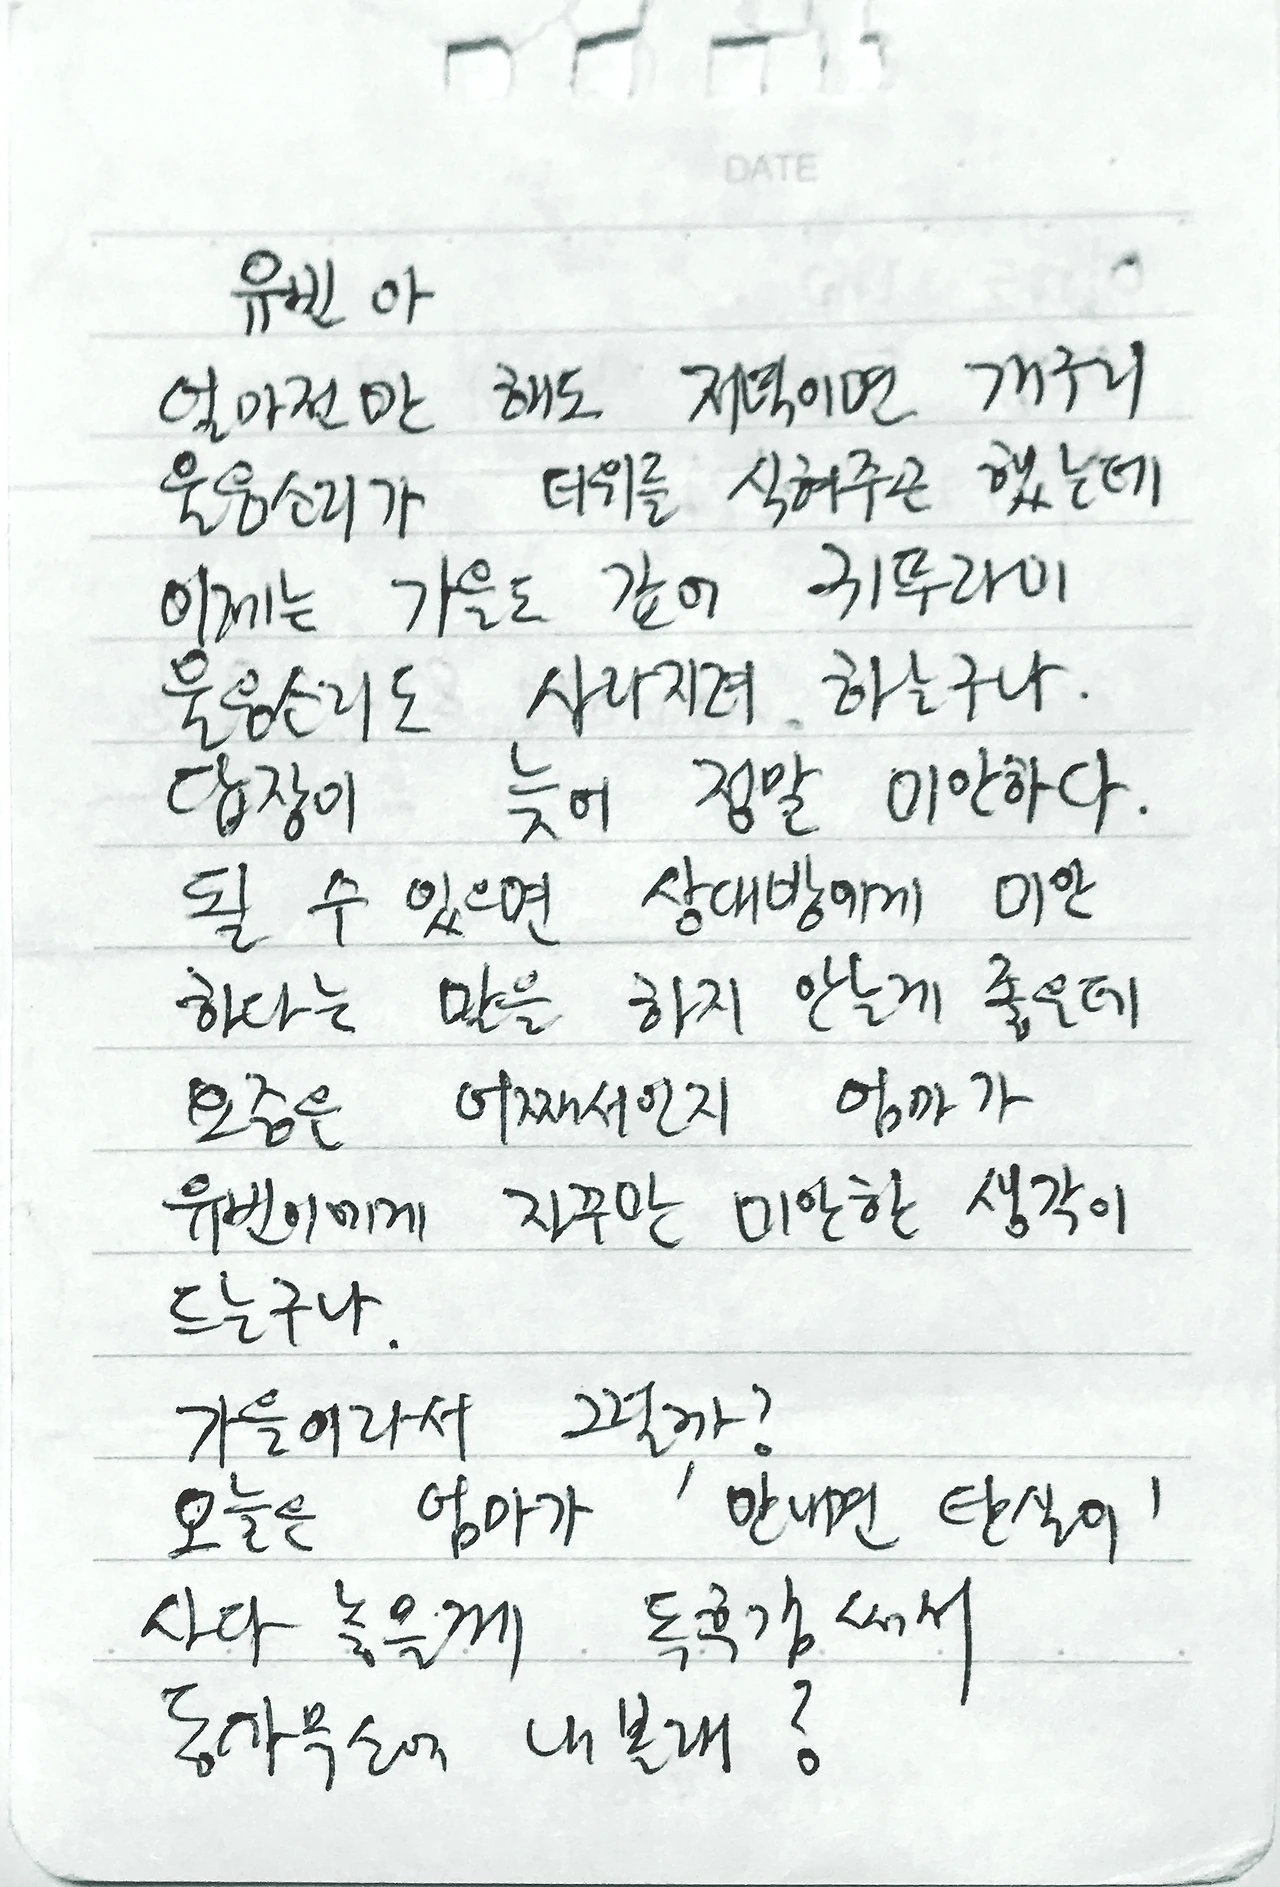 DATE
유빈아
얼마전만 해도 저녁이면 개구리
울음소리가 더위를 식혀주곤 했는데
이제는 가을도 깊어 귀뚜라미
울음소리도 사라지려 하는구나.
답장이 늦어 정말 미안하다.
될 수 있으면 상대방에게 미안
하다는 말을 하지 안는게 좋은데
요즘은 어쩌서인지 엄마가
유빈이에게 자꾸만 미안한 생각이
드는구나.
가을이라서 그럴까?
오늘은 엄마가 '안내면 탄실이'
사다 놓을께 독후감 써서
동아무선에 내볼래?